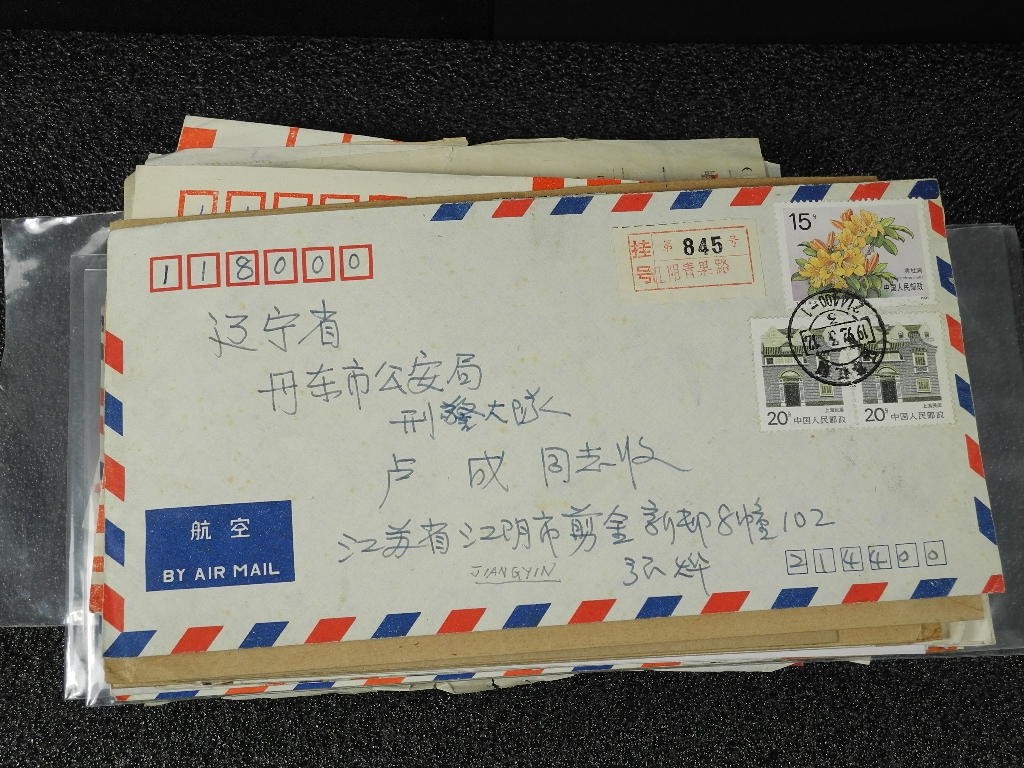 118000
挂号
第 845 号
江阴青果路
15分
中国人民邮政
辽宁省
丹东市公安局
刑警大队
卢 成 同志收
20分 中国人民邮政
20分 中国人民邮政
航空
BY AIR MAIL
江苏省江阴市剪金新村8幢102
JIANGYIN
张烨
214400